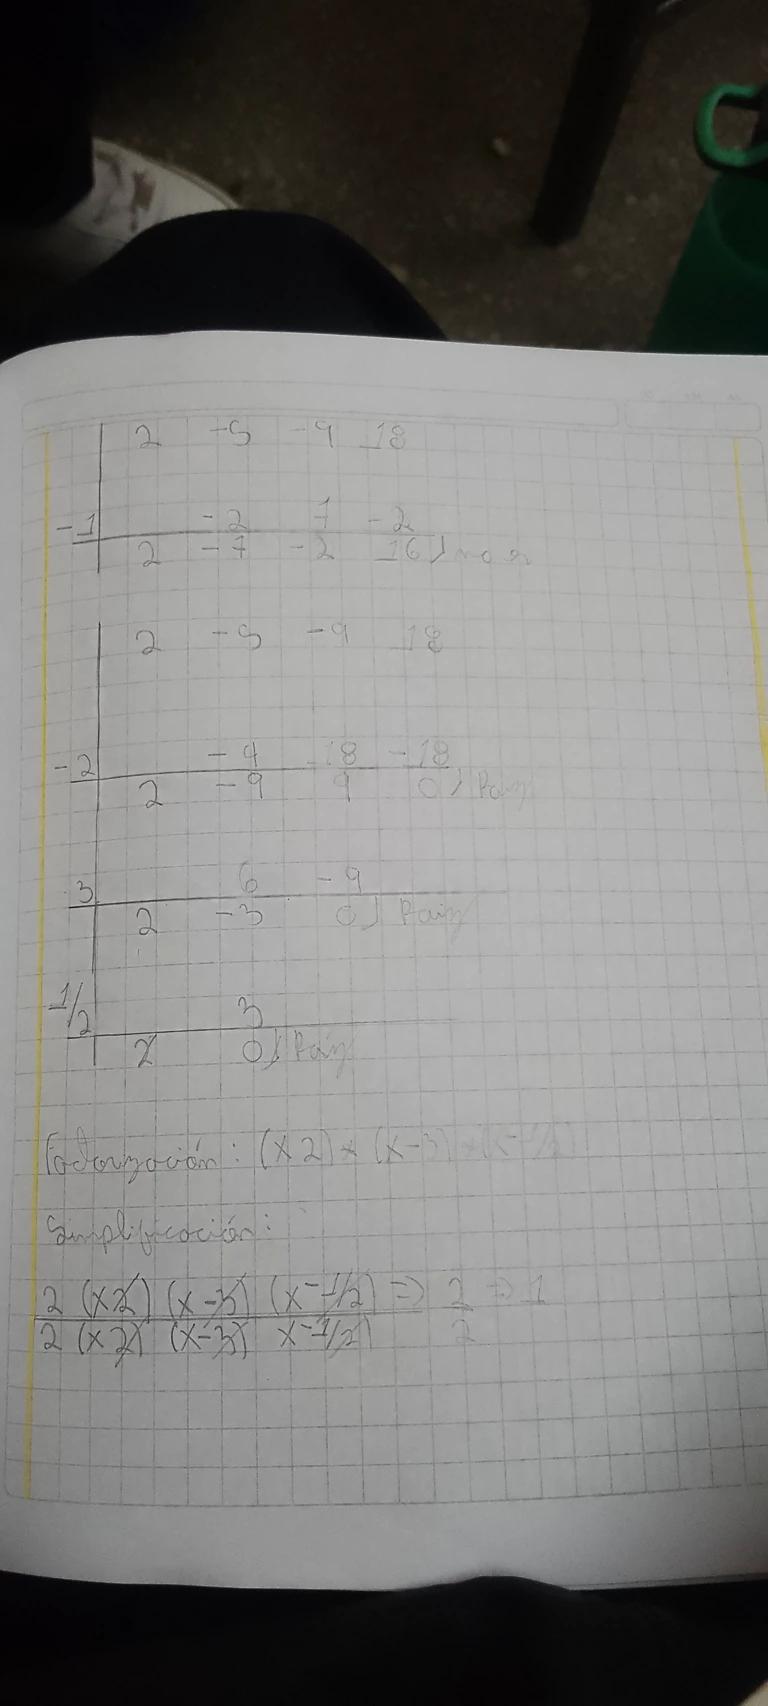 2 -5 -9 18
-1 -2 7 -2
2 -7 -2 16) no
2 -5 -9 18
-2 -4 18 -18
2 -9 9 0) Raiz
3 6 -9
2 -3 0) Raiz
1/2 3
2 0) Raiz
Factorización: (x 2) * (x-3) * (x-1/2)
Simplificación:
2 (x 2) (x-3) (x-1/2) => 2 => 1
2 (x 2) (x-3) x-1/2) 2